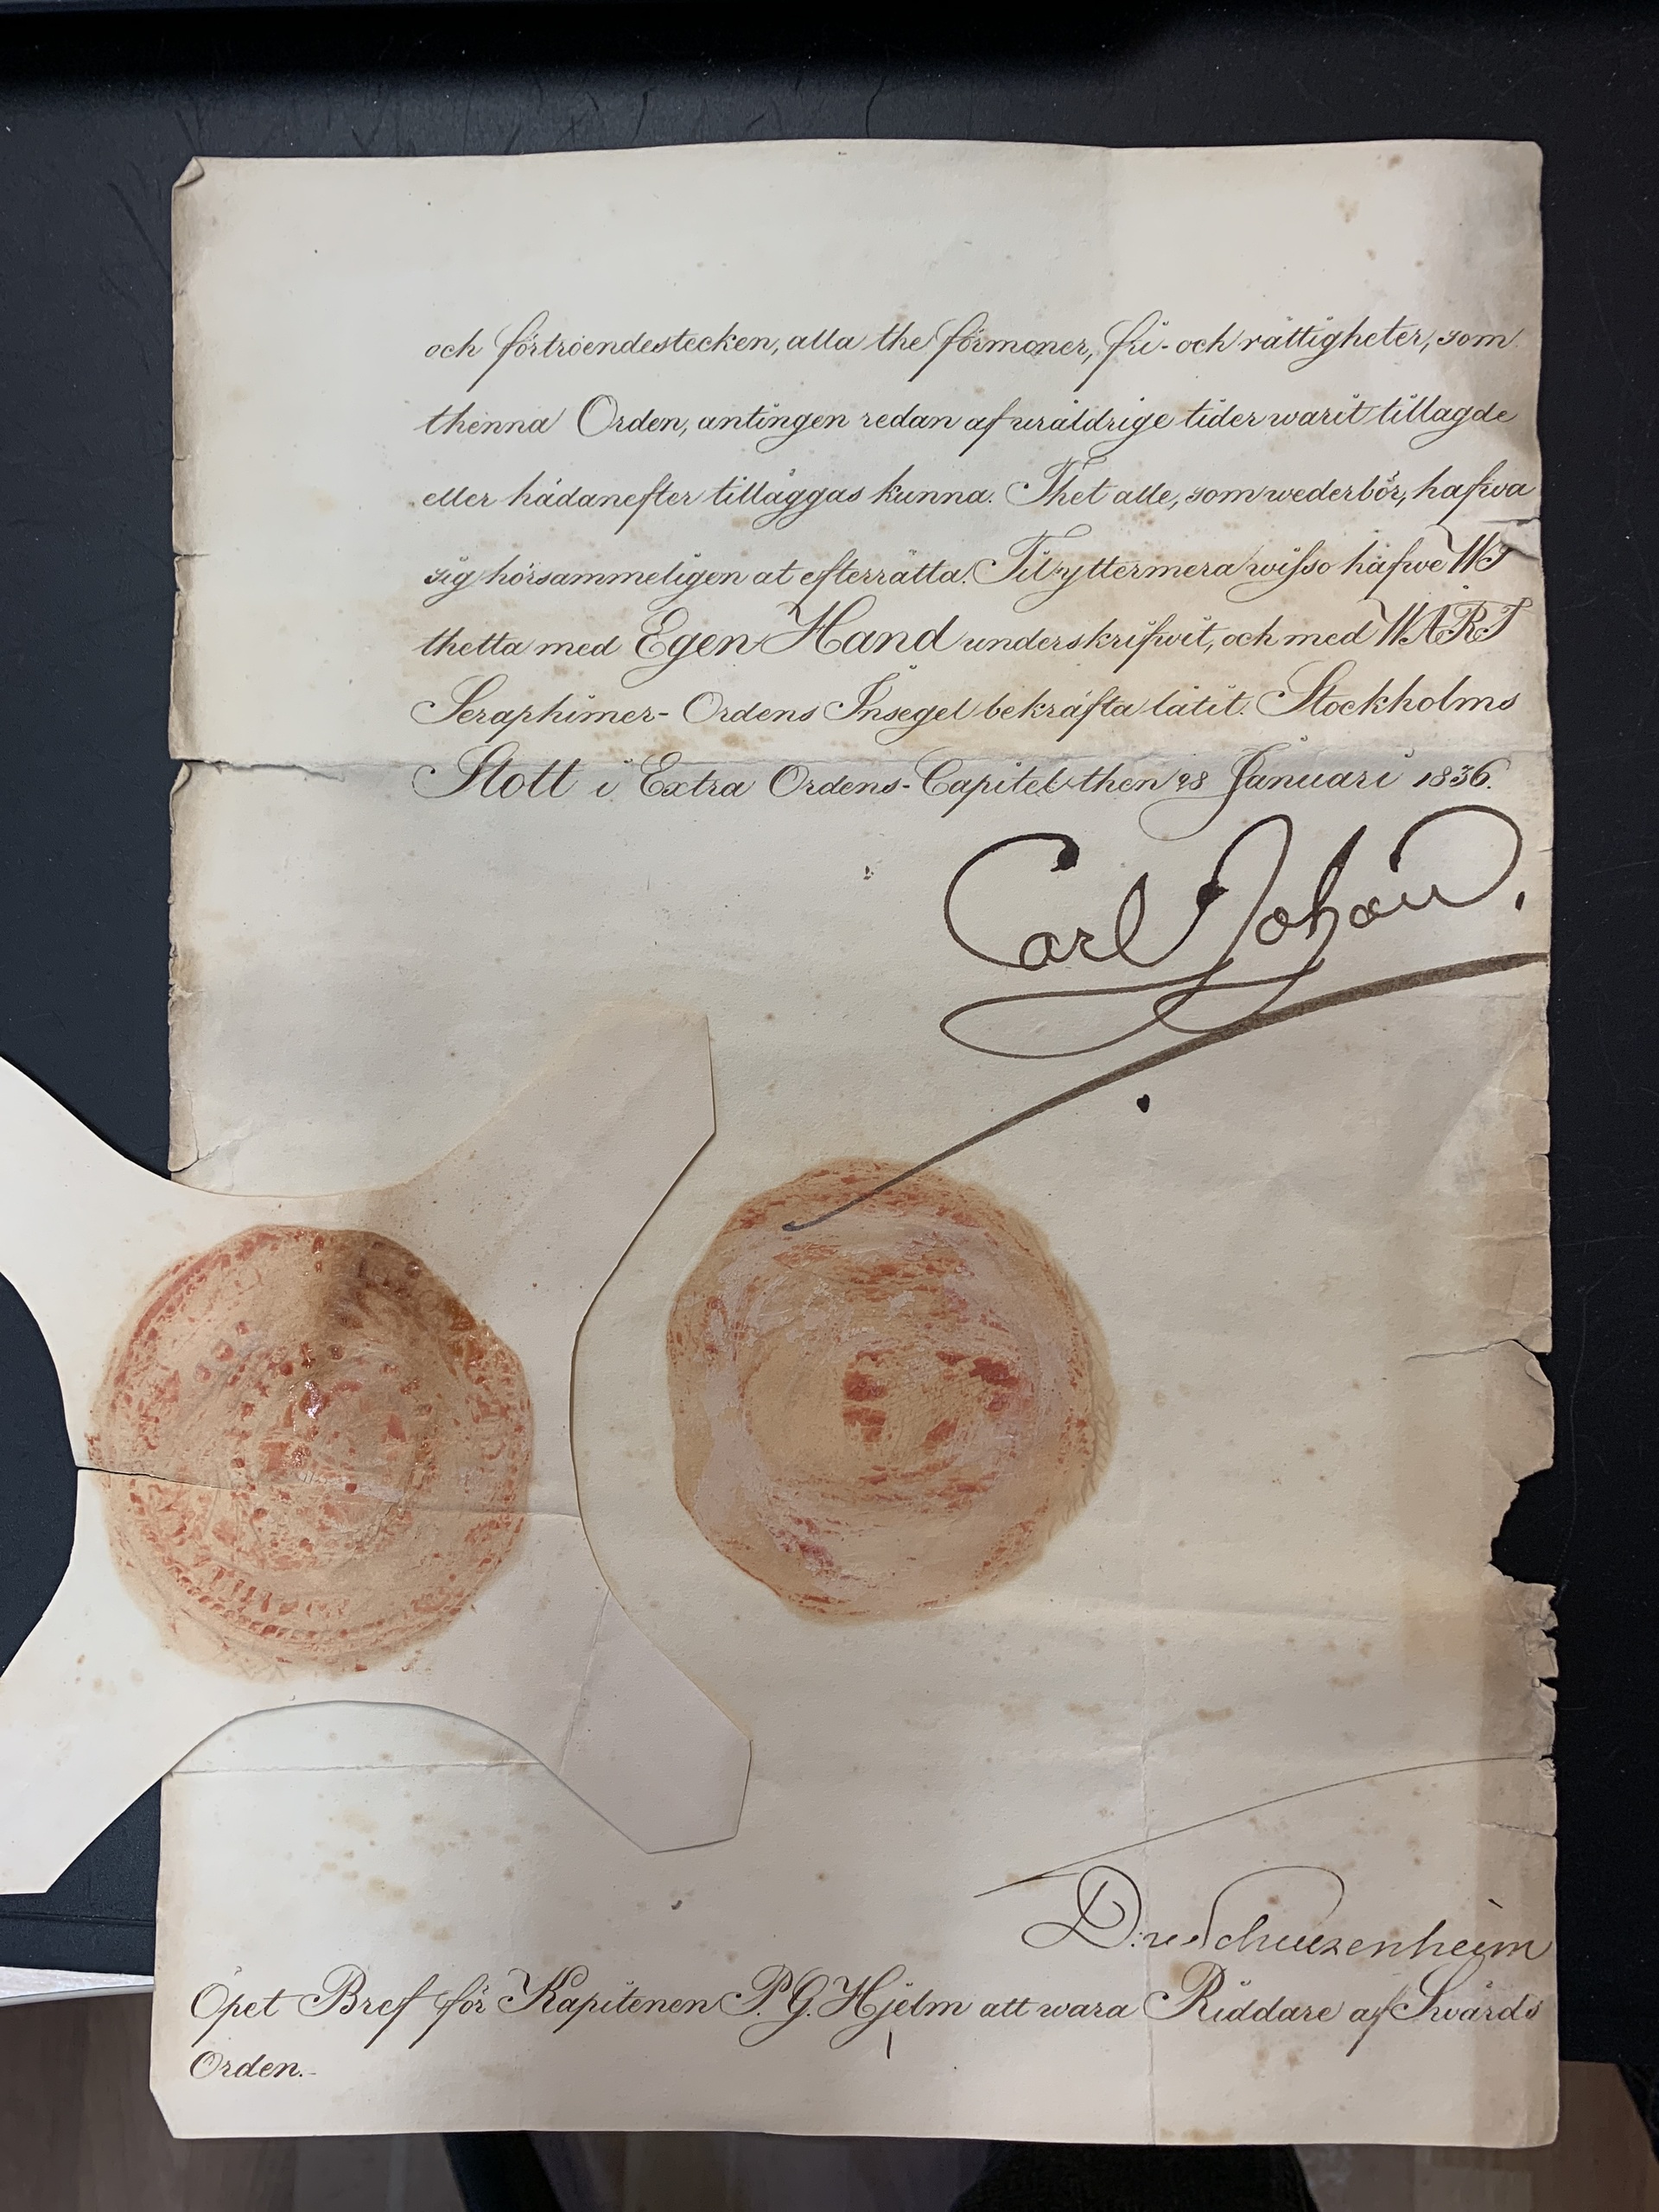 och förtroendestecken, alla the förmoner, fri- och rättigheter, som
thenna Orden, antingen redan af uråldrige tider warit tillagde
eller hädanefter tilläggas kunna. Thet alle, som wederbör, hafwa
sig hörsammeligen at efterrätta. Til yttermera wisso hafwe WJ
thetta med Egen Hand underskrifwit, och med WÅRT
Seraphimer-Ordens Insegel bekräfta låtit. Stockholms
Slott i Extra Ordens-Capitel then 28 Januari 1836.
Carl Johan.
D. v. Schulzenheim
Öpet Bref för Kapitenen P. G. Hjelm att wara Riddare af Swärds
Orden.-